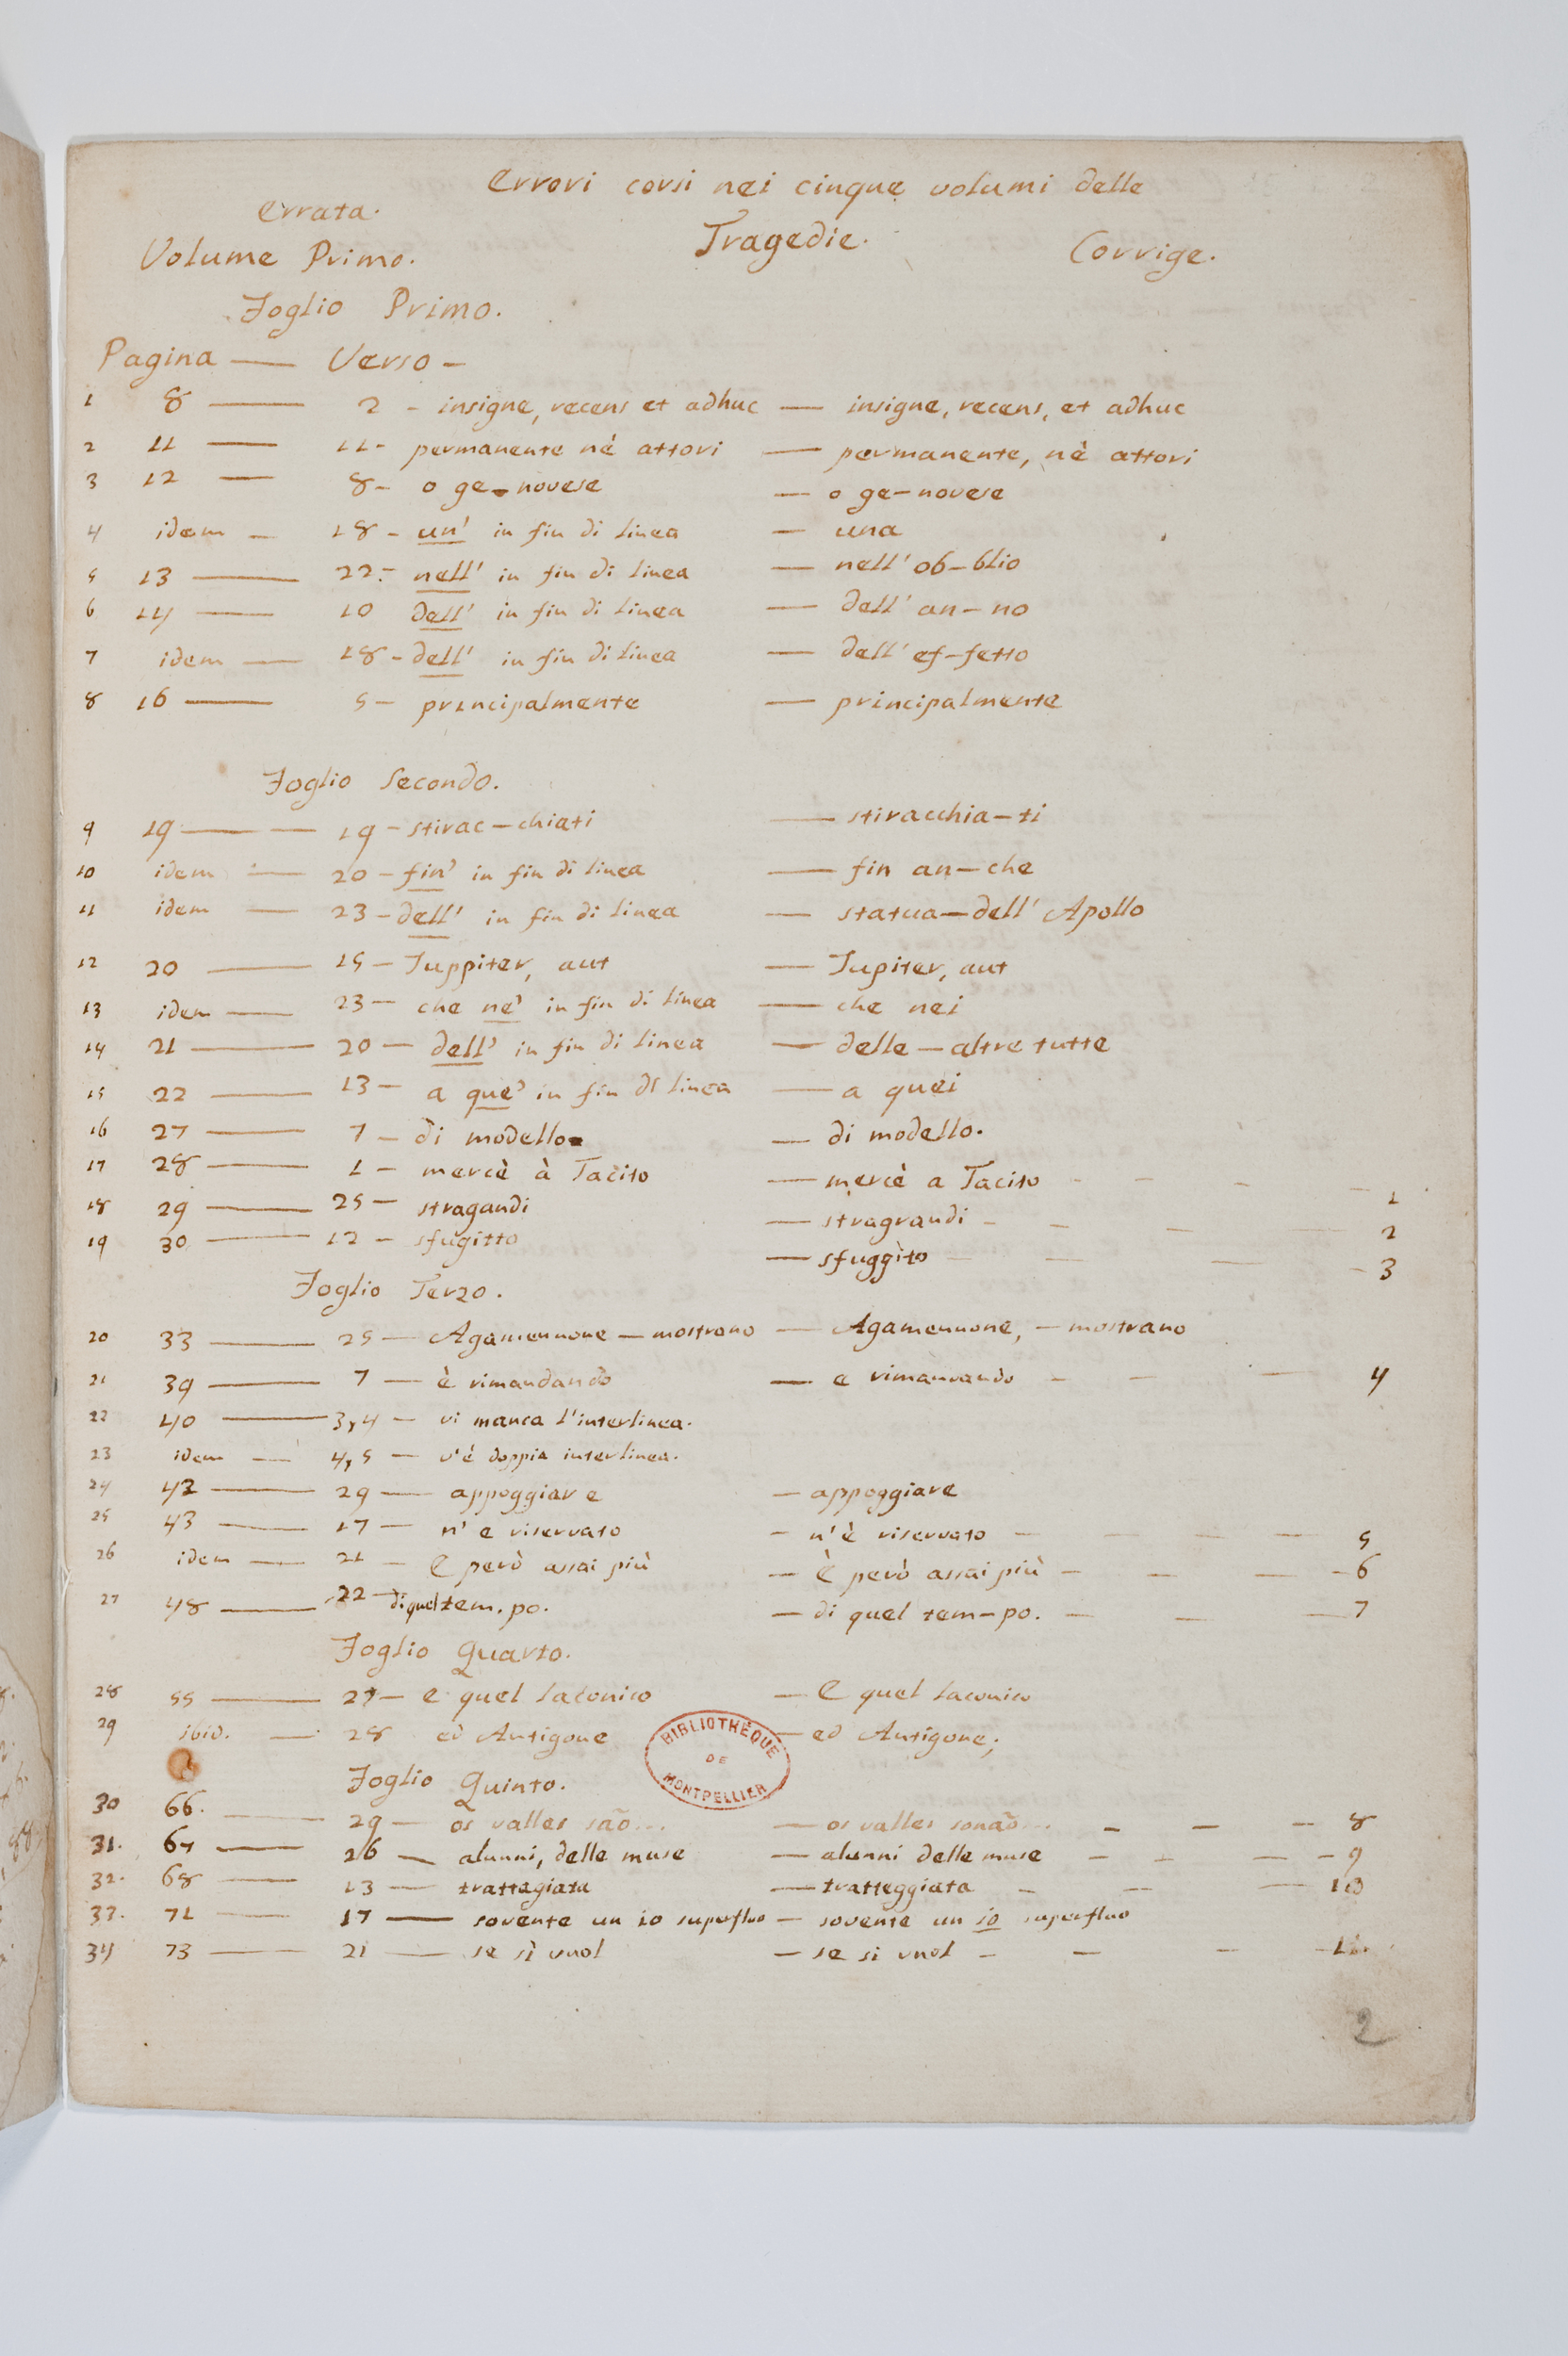 Errori corsi nei cinque volumi delle
Errata.
Tragedie.
Volume Primo. Corrige.
Foglio Primo.
Pagina — Verso —
1 8 — 2 - insigne, recens et adhuc — insigne, recens, et adhuc
2 11 — 11 - permanente nè attori — permanente, nè attori
3 12 — 8 - o ge-novese — o ge-novese
4 idem — 18 - un' in fin di linea — una
5 13 — 22 - nell' in fin di linea — nell' ob-blio
6 14 — 10 dell' in fin di linea — dell' an-no
7 idem — 18 - dell' in fin di linea — dell' ef-fetto
8 16 — 5 - prıncipalmente — principalmente
Foglio Secondo.
9 19 — 19 - stirac-chiati — stiracchia-ti
10 idem — 20 - fin' in fin di linea — fin an-che
11 idem — 23 - dell' in fin di linea — statua-dell' Apollo
12 20 — 15 - Juppiter, aut — Jupiter, aut
13 idem — 23 - che ne' in fin di linea — che nei
14 21 — 20 - dell' in fin di linea — delle - altre tutte
15 22 — 13 - a que' in fin di linea — a quei
16 27 — 7 - di modello — di modello.
17 28 — 1 - mercè à Tacito — mercè a Tacito - - - 1
18 29 — 25 - stragandi — stragrandi - - - 2
19 30 — 12 - sfugitto — sfuggito - - - 3
Foglio Terzo.
20 33 — 25 - Agamennone - mostrano — Agamennone, - mostrano
21 39 — 7 - è rimandando — e rimandando - - - 4
22 40 — 3,4 - vi manca l'interlinea.
23 idem — 4,5 - v'è doppia interlinea.
24 42 — 29 - appoggiar e — appoggiare
25 43 — 17 - n' e riservato — n' è riservato - - - 5
26 idem — 21 - E però assai più — È però assai più - - - 6
27 48 — 22 - di quel tem.po. — di quel tem-po. - - - 7
Foglio Quarto.
28 55 — 27 - e quel laconico — E quel laconico
29 ibid. — 28 ed Antigone — ed Antigone;
BIBLIOTHÈQUE DE MONTPELLIER
Foglio Quinto.
30 66. — 29 - os valles são... — os valles sonaõ... - - - 8
31. 67 — 26 - alunni, delle muse — alunni delle muse - - - 9
32. 68 — 13 - trattagiata — tratteggiata - - - 10
33. 71 — 17 - sovente un io superfluo — sovente un io superfluo
34 73 — 21 - se sì vuol — se si vuol - - - 11.
2